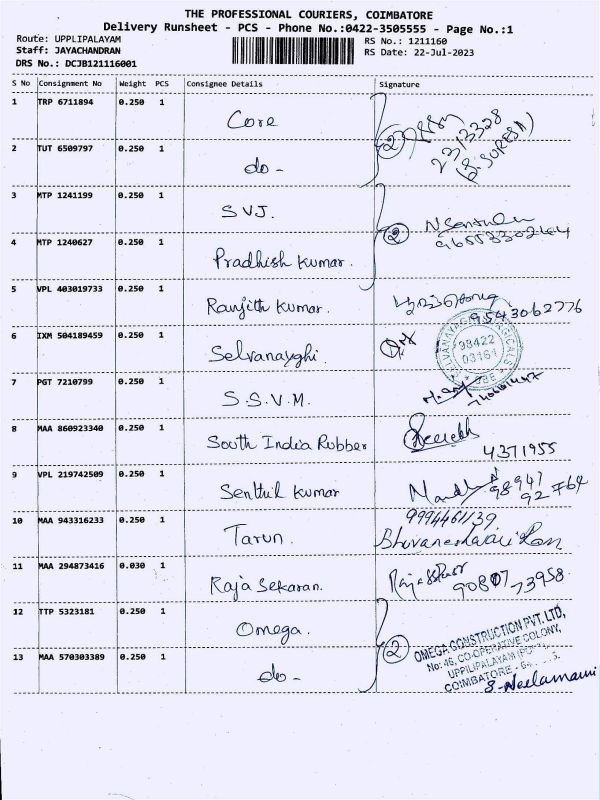 THE PROFESSIONAL COURIERS, COIMBATORE
Delivery Runsheet - PCS - Phone No.:0422-3505555 - Page No.:1
Route: UPPLIPALAYAM
RS No.: 1211160
Staff: JAYACHANDRAN
RS Date: 22-Jul-2023
DRS No.: DCJB121116001
S No Consignment No Weight PCS Consignee Details Signature
1 TRP 6711894 0.250 1 Core
2313328
(S. SURESH)
2 TUT 6509797 0.250 1 do-
3 MTP 1241199 0.250 1 SVJ.
4 MTP 1240627 0.250 1 Pradhish Kumar.
5 VPL 403019733 0.250 1 Ranjith Kumar. 9543062776
6 IXM 504189459 0.250 1 Selvanayghi
98422
03161
7 PGT 7210799 0.250 1 S.S.V.M.
8 MAA 860923340 0.250 1 South India Rubber 4371955
9 VPL 219742509 0.250 1 Senthil Kumar 98947
92764
10 MAA 943316233 0.250 1 Tarun. 9994461139
Bhuvaneshwari
11 MAA 294873416 0.030 1 Raja Sekaran. 90807 73958
12 TTP 5323181 0.250 1 Omega.
2 OMEGA CONSTRUCTION PVT. LTD,
No: 46, CO-OPERATIVE COLONY,
UPPILIPALAYAM
COIMBATORE
13 MAA 570303389 0.250 1 do- S. Neelamani